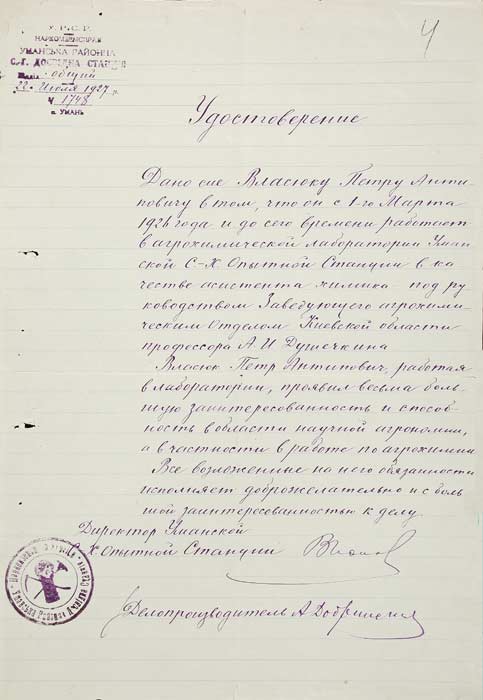 У. Р. С. Р.
НАРКОМЗЕМСПРАВ
УМАНСЬКА РАЙОННА
С.-Г. ДОСЛІДНА СТАНЦІЯ
общий
22 Июля 1927 р.
Ч 1748
м. УМАНЬ
4
Удостоверение
Дано сие Власюку Петру Анти-
повичу в том, что он с 1-го Марта
1926 года и до сего времени работает
в агрохимической лаборатории Уман
ской С-Х. Опытной Станции в ка
честве асистента химика под ру
ководством Заведующего агрохими-
ческим Отделом Киевской области
профессора А. И. Душечкина
Власюк Петр Антипович, работая
в лаборатории, проявил весьма боль-
шую заинтересованность и способ-
ность в области научной агрономии,
а в частности в работе по агрохимии
Все возложенные на него обязанности
исполняет доброжелательно и с боль
шой заинтересованностью к делу
Директор Уманской
С-Х Опытной Станции
Делопроизводитель А